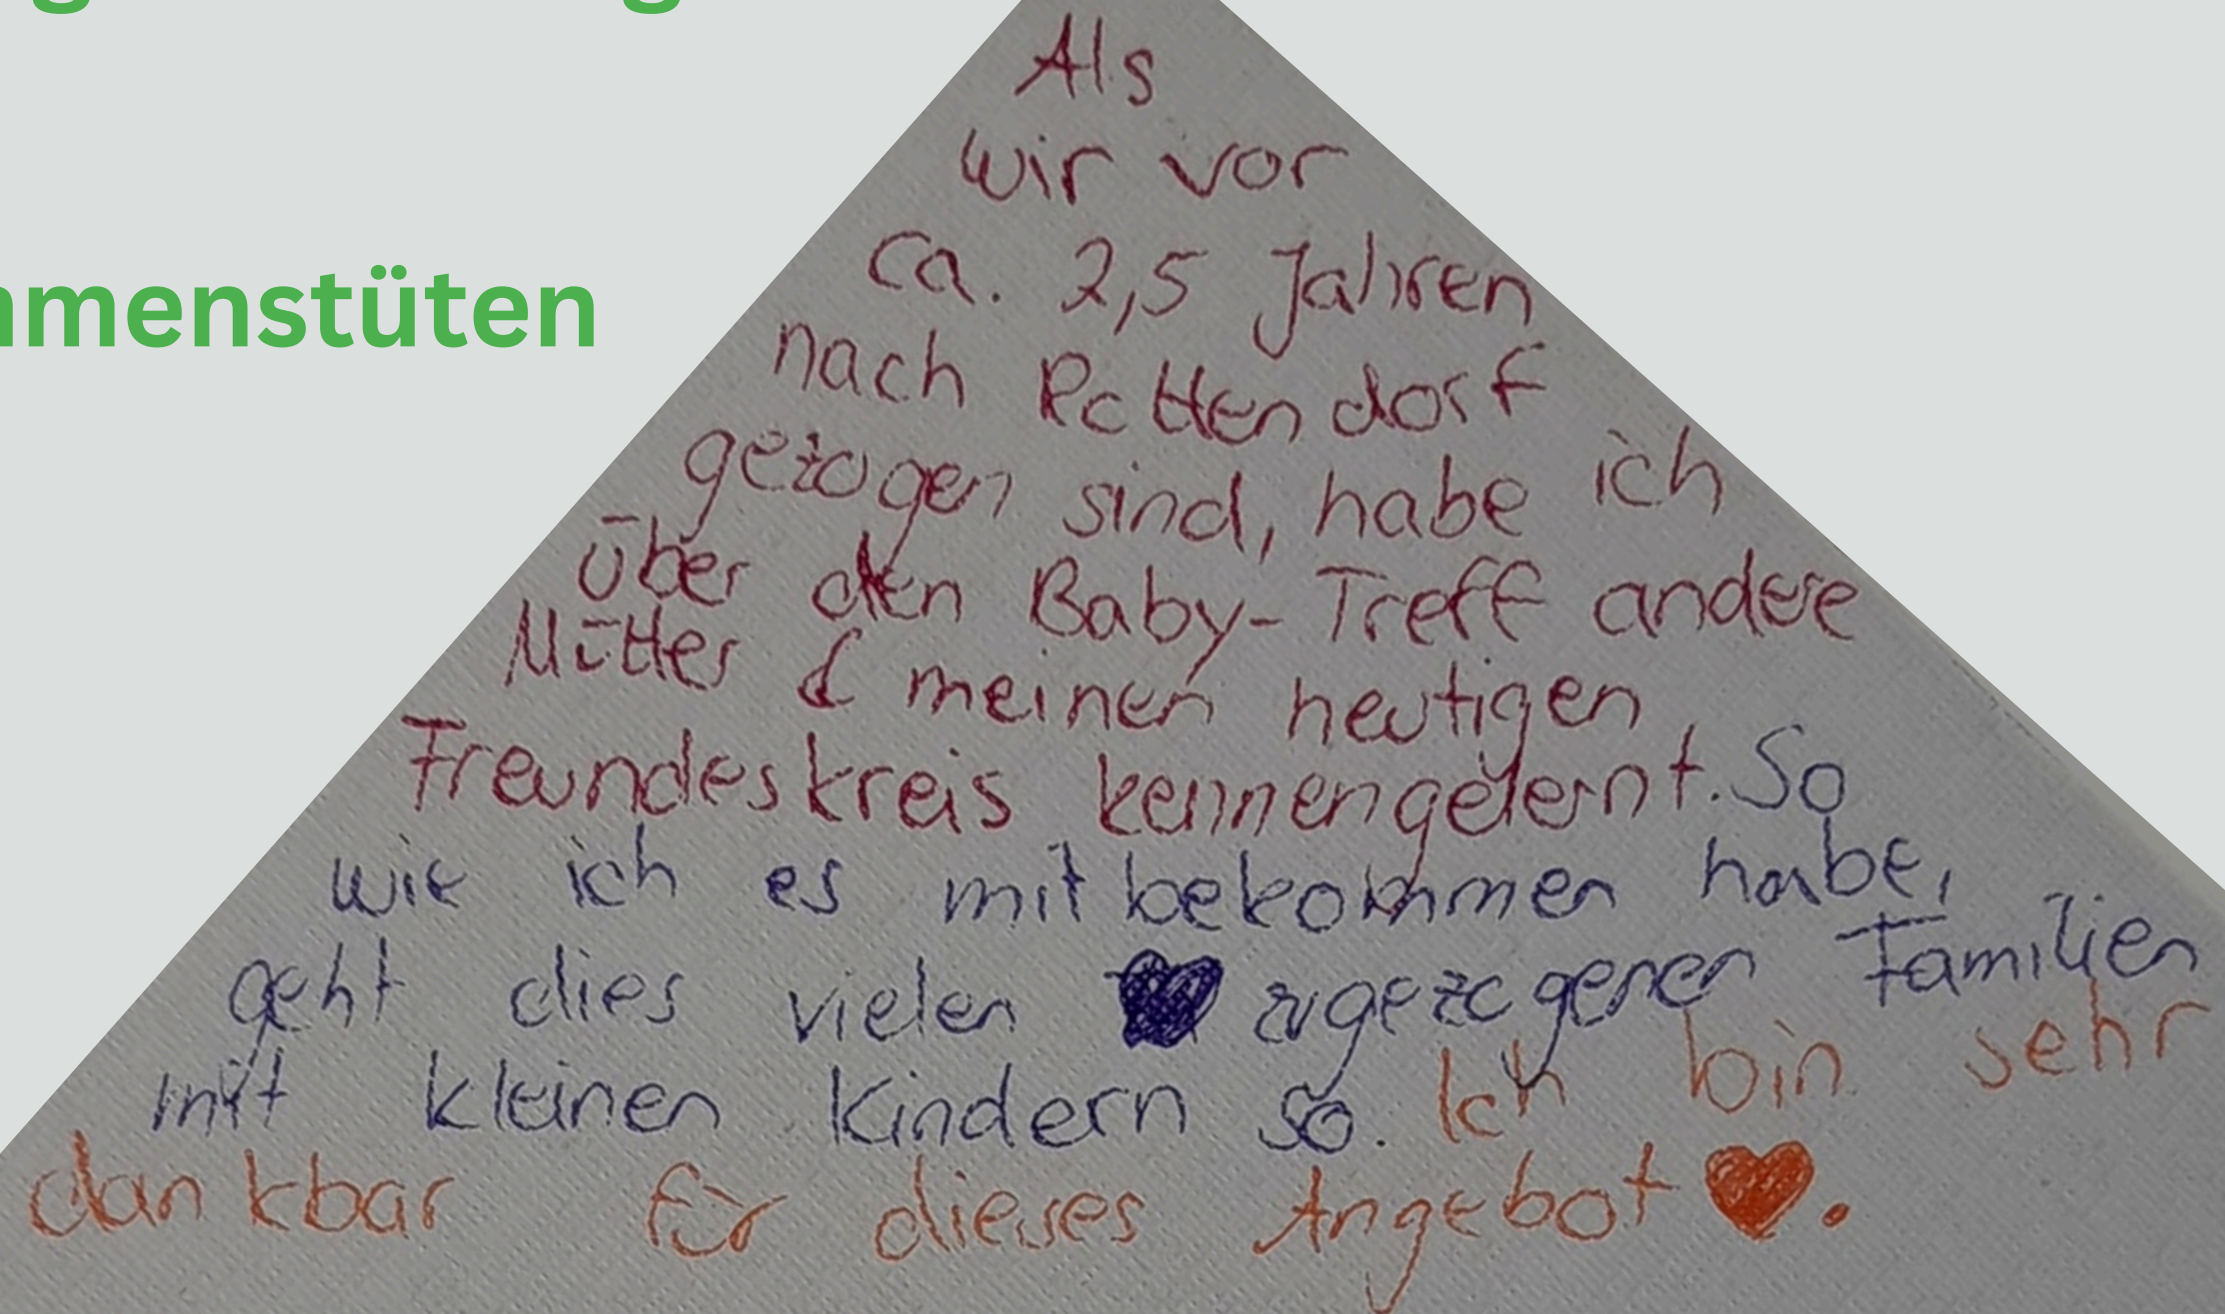 mmenstüten
Als
wir vor
ca. 2,5 Jahren
nach Rottendorf
gezogen sind, habe ich
über den Baby-Treff andere
Mütter & meinen heutigen
Freundeskreis kennengelernt. So
wie ich es mitbekommen habe,
geht dies vielen ♥ zugezogenen Familien
mit kleinen Kindern so. Ich bin sehr
dankbar für dieses Angebot ♥.